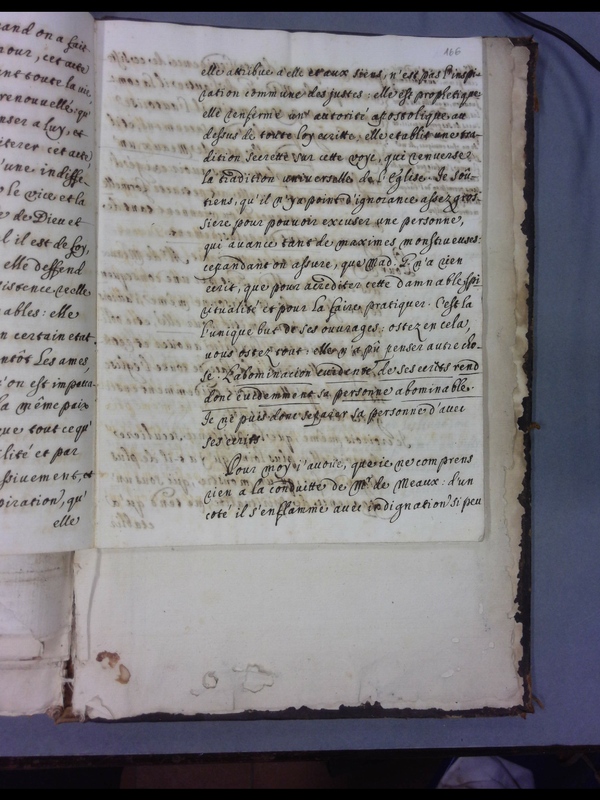 and on a fait
nour, cet acte
nt toute la vie,
renouvellé, qu'
nser a Luy, et
iterer cet acte
'une indiffe-
le vice et la
de Dieu et
il est de foy,
Elle deffend
istence réelle
ables: Elle
n certain etat
ntôt Les ames
'on est impuis-
la même paix
que tout ce qu'
ilité et par
ssivement, et
piration, qu'
elle
166
elle attribue a elle et aux siens, n'est pas l'inspi-
ration commune des justes: elle est prophetique
elle renferme une autorité apostolique au
dessus de toute loy ecritte; elle etablit une tra-
dition secrette sur cette voye, qui renverser
la tradition universelle de l'Eglise. Je soû-
tiens, qu'il n'y a point d'ignorance assez gros-
siere pour pouvoir excuser une personne,
qui avance tant de maximes monstrueuses:
cepandant on assure, que Mad. G. n'a rien
ecrit, que pour acréditer cette damnable spi-
ritualité et pour la faire pratiquer. C'est la
l'unique but de ses ouvrages: ostez en cela,
vous ostez tout: elle n'a pû penser autre cho-
se. L'abomination evidente de ses ecrits rend
donc evidemment sa personne abominable.
Je ne puis donc separer sa personne d'avec
ses ecrits.
Pour moy j'avoüe, que je ne comprens
rien a la conduitte de Mr. de Meaux: d'un
coté il s'enflamme avec indignation si peu